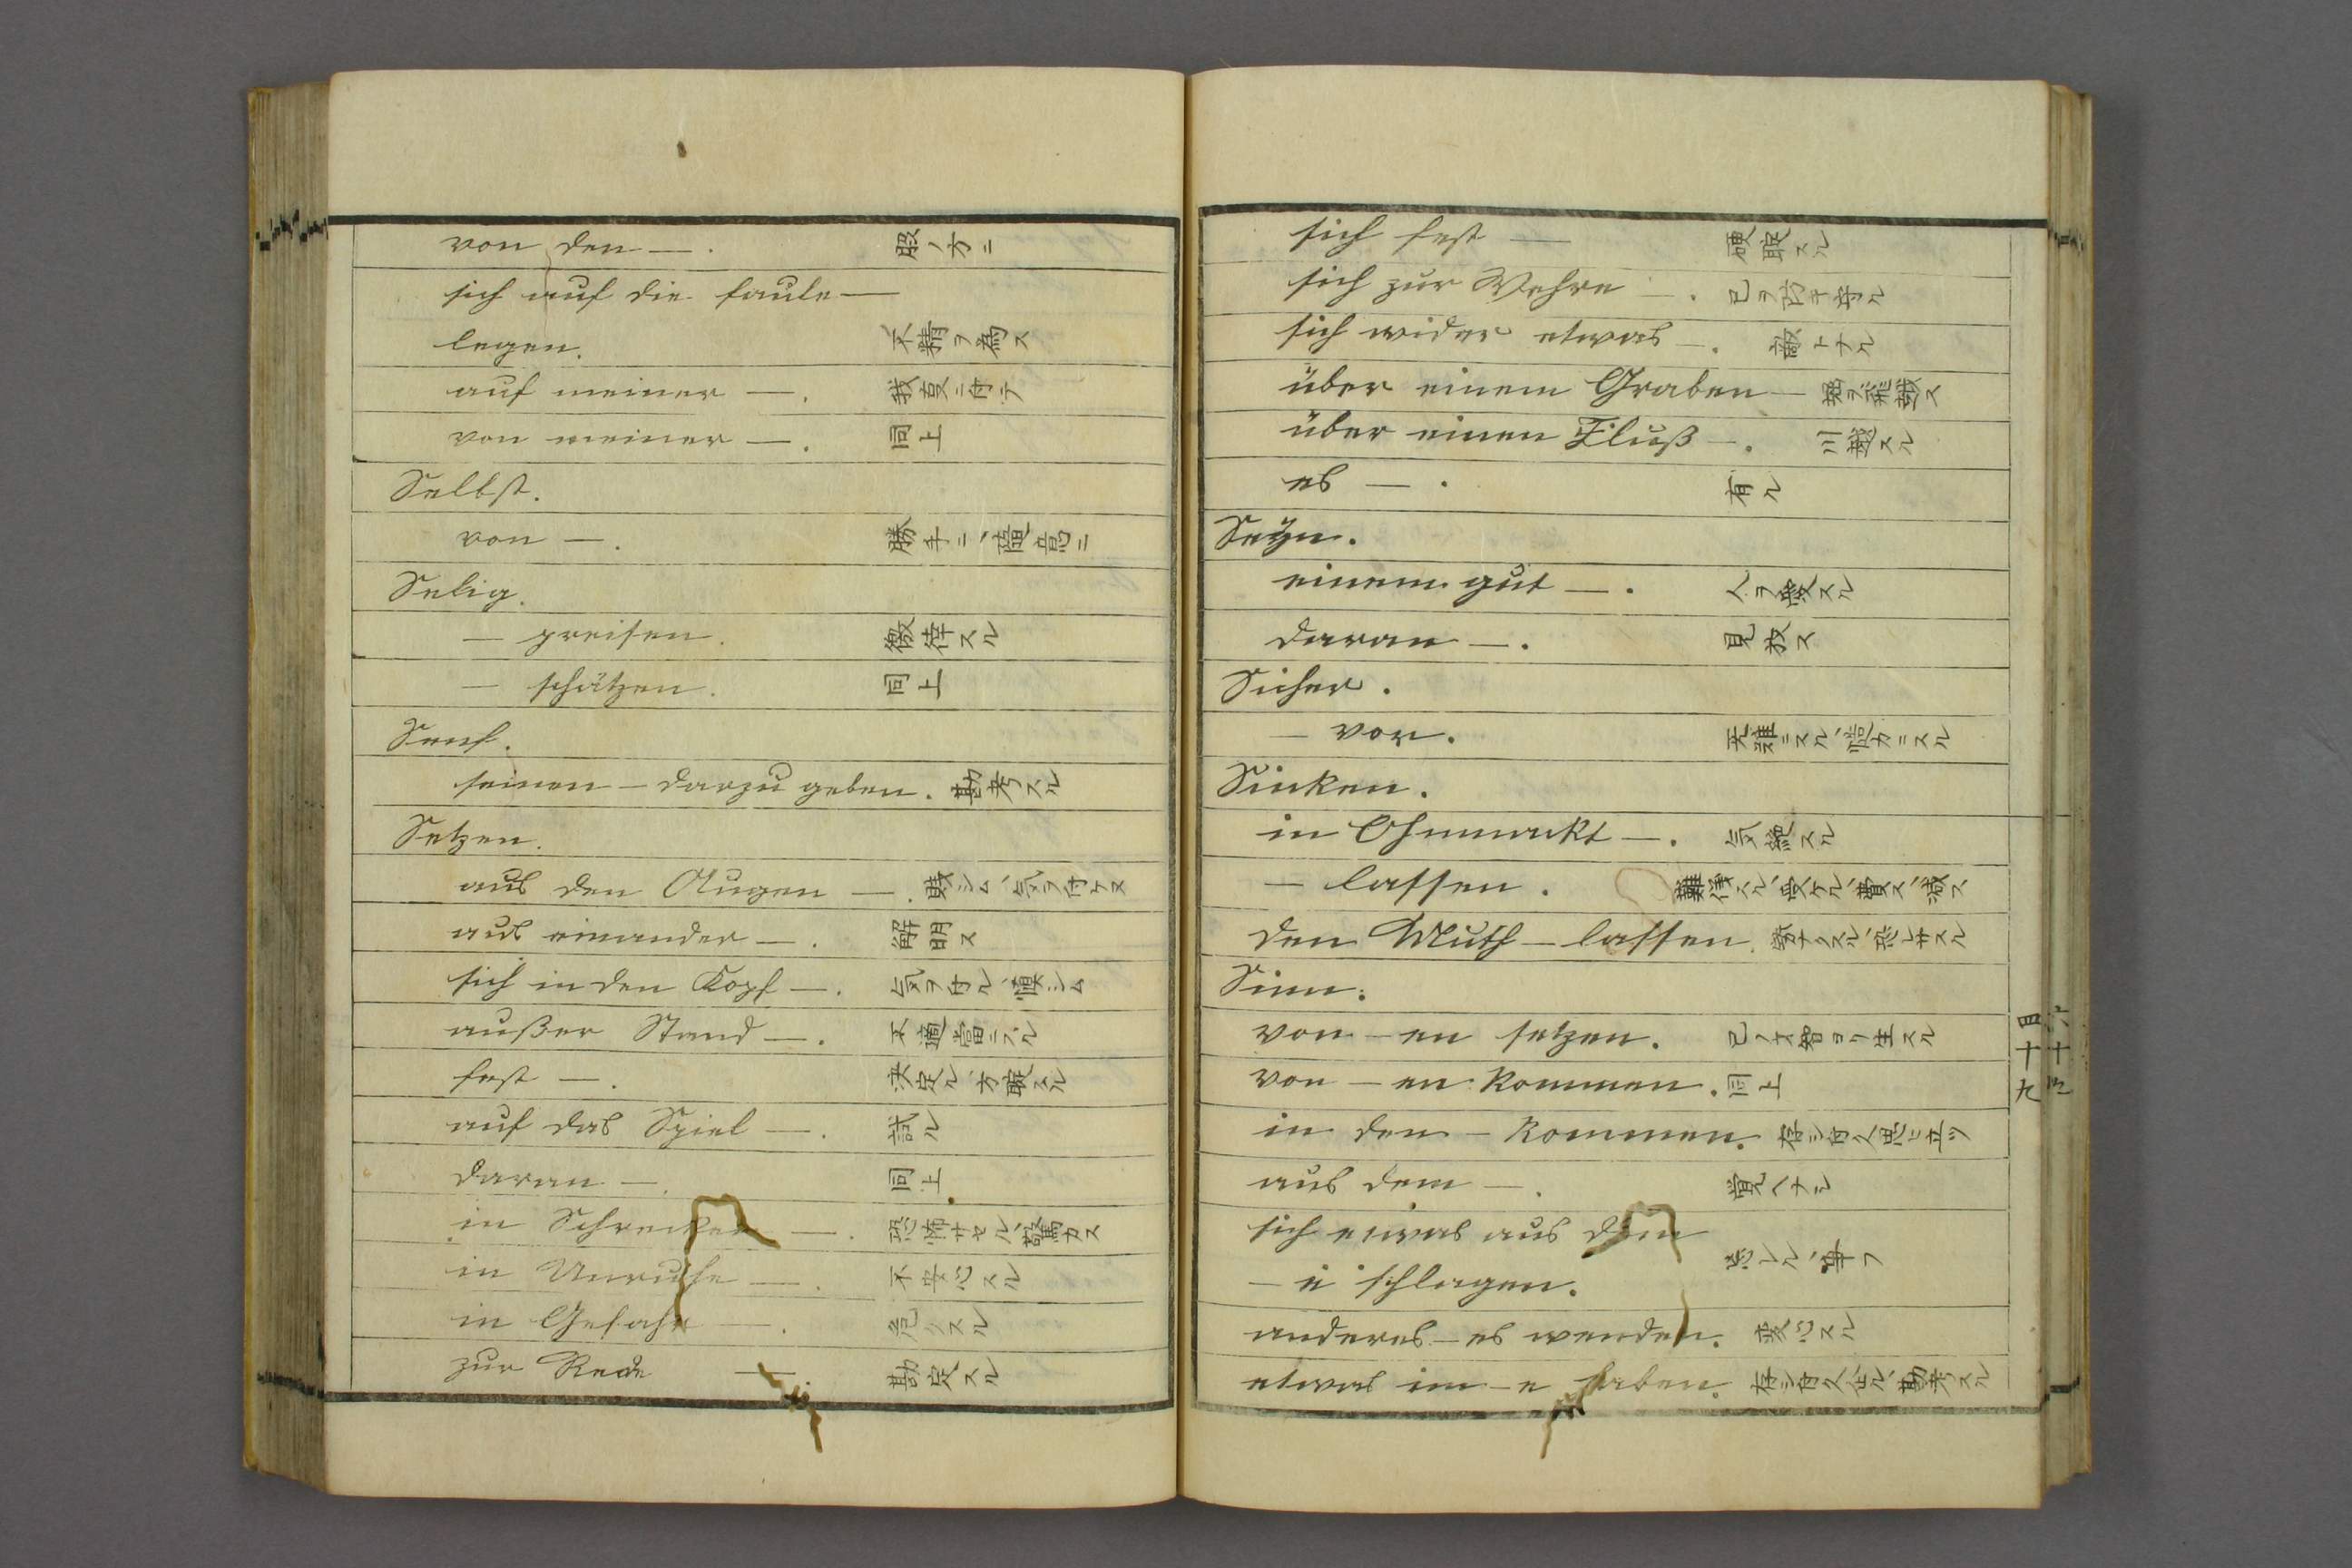 von den —. 股ノ方ニ
sich auf die faule —
legen. 不精ヲ為ス
auf meiner —. 我頁ニ付テ
von meiner —. 同上
Selbst.
von —. 勝手ニ、随意ニ
Selig.
— preisen. 徼倖スル
— schätzen. 同上
Senf.
seinen — darzu geben. 勘考スル
Setzen.
aus den Augen —. 賤シム、気ヲ付ケヌ
aus einander —. 解明ス
sich in den Kopf —. 気ヲ付ル、慎シム
außer Stand —. 不適當ニスル
fest —. 決定ル
auf das Spiel —. 試ル
daran —. 同上
in Schrecken —. 恐怖サセル、驚カス
in Unruhe —. 不安心スル
in Gefahr —. 危クスル
zur Rede — 勘定スル
sich fest —
sich zur Wehre —. 己ヲ防キ守ル
sich wider etwas —. 敵トナル
über einem Graben — 堀ヲ飛越ス
über einen Fluß —. 川越スル
es —. 有ル
Seÿn.
einem gut —. 人ヲ愛スル
daran —. 見放ス
Sicher.
— vor. 慥カニスル
Sinken.
in Ohnmackt —. 気絶スル
— lassen. 受ケル、費ス、減ス
den Muth — lassen.
Sinn.
von — en setzen. 己ノ才智ヨリ生スル
von — en kommen. 同上
in den — kommen. 思ヒ立ツ
aus dem —. 覚ヘナシ
sich etwas aus dem
— e schlagen. 忘レル
anderes — es wenden. 変心スル
etwas im — e haben. 勘考スル
四十九